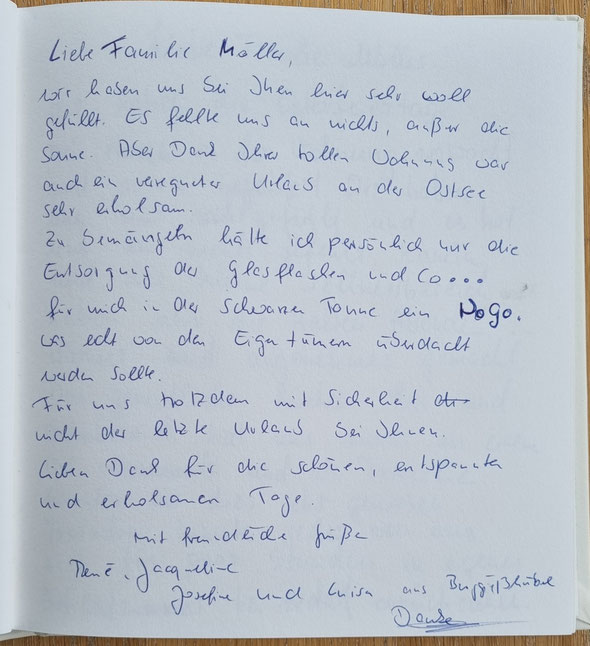 Liebe Familie Möller,
wir haben uns bei Ihnen hier sehr woll
gefühlt. Es fehlte uns an nichts, außer die
Sonne. Aber Dank Ihrer tollen Wohnung war
auch ein verregneter Urlaub an der Ostsee
sehr erholsam.
Zu bemängeln hätte ich persönlich nur die
Entsorgung der Glasflaschen und Co...
für mich in der schwarzen Tonne ein NoGo.
was echt von den Eigentümern überdacht
werden sollte.
Für uns trotzdem mit Sicherheit
nicht der letzte Urlaub bei Ihnen.
Lieben Dank für die schönen, entspannten
und erholsamen Tage.
Mit freundliche Grüße
René, Jacqueline
Josefine und Luisa aus
Danke